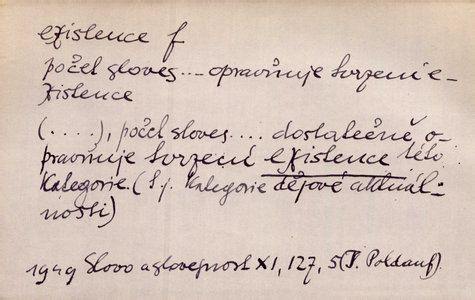 existence f
počet sloves... opravňuje tvrzení e-
xistence
(....), počet sloves.... dostatečně o-
pravňuje tvrzení existence této
kategorie. (t.j. kategorie dějové aktuál-
nosti)
1949 Slovo a slovesnost XI, 127, 5 (I. Poldauf)